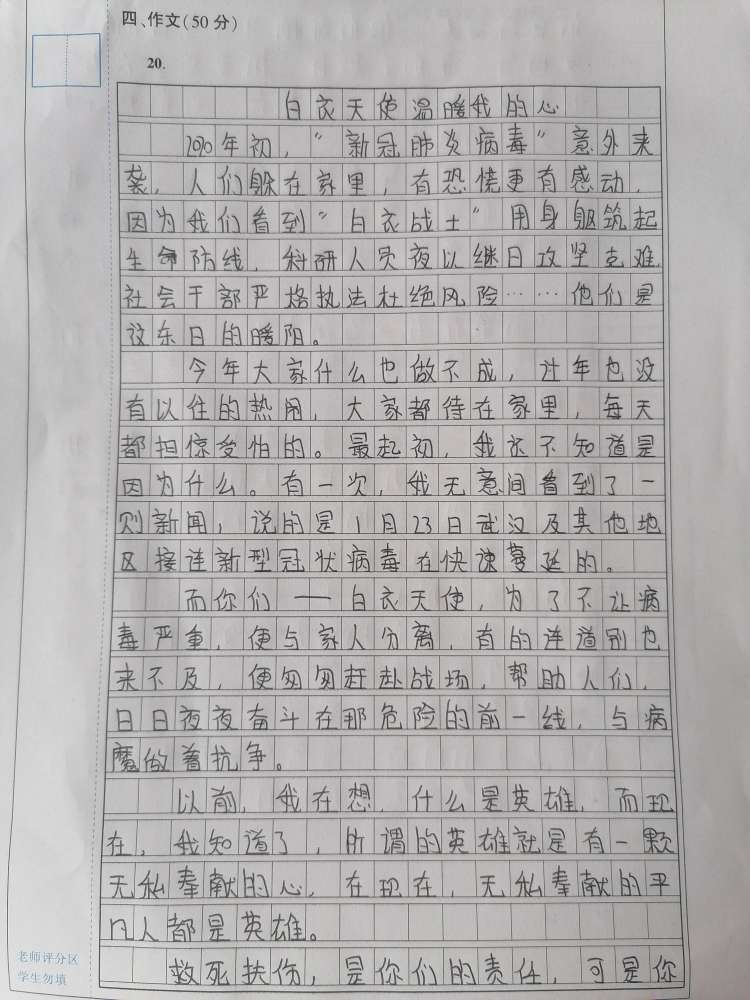 四、作文(50分)
20.
白衣天使温暖我的心
2020年初,“新冠肺炎病毒”意外来
袭,人们躲在家里,有恐慌更有感动,
因为我们看到“白衣战士”用身躯筑起
生命防线,科研人员夜以继日攻坚克难
社会干部严格执法杜绝风险……他们是
这东日的暖阳。
今年大家什么也做不成,让年也没
有以住的热闹,大家都待在家里,每天
都担惊受怕的。最起初,我还不知道是
因为什么。有一次,我无意间看到了一
则新闻,说的是1月23日武汉及其他地
区接连新型冠状病毒在快速蔓延的。
而你们——白衣天使,为了不让病
毒严重,便与家人分离,有的连道别也
来不及,便匆匆赶赴战场,帮助人们,
日日夜夜奋斗在那危险的前一线,与病
魔做着抗争。
以前,我在想,什么是英雄,而现
在,我知道了,所谓的英雄就是有一颗
无私奉献的心,在现在,无私奉献的平
凡人都是英雄。
救死扶伤,是你们的责任,可是你
老师评分区
学生勿填